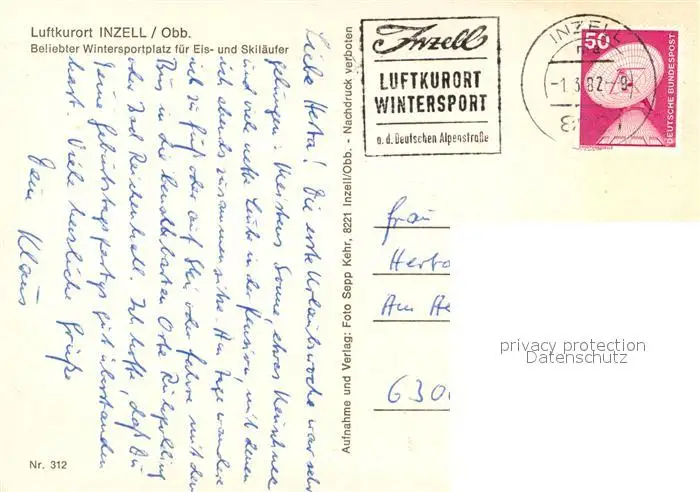 Luftkurort INZELL / Obb.
Beliebter Wintersportplatz für Eis- und Skiläufer
Liebe Herta! Die erste Urlaubswoche war sehr
gelungen: Meistens Sonne, etwas Neuschnee
und viele nette Leute in der Pension, mit denen
ich abends zusammen sitze. Am Tage wandere
ich zu Fuß oder auf Ski oder fahre mit dem
Bus in die benachbarten Orte Ruhpolding
oder Bad Reichenhall. Ich hoffe, daß Du
Deine Geburtstagspartys gut überstanden
hast. Viele herzliche Grüße
Dein Klaus
Nr. 312
Aufnahme und Verlag: Foto Sepp Kehr, 8221 Inzell/Obb. - Nachdruck verboten
Inzell
LUFTKURORT
WINTERSPORT
a. d. Deutschen Alpenstraße
INZELL
-1.3.82-9
50
DEUTSCHE BUNDESPOST
Frau
Herta
Am He
630
privacy protection
Datenschutz